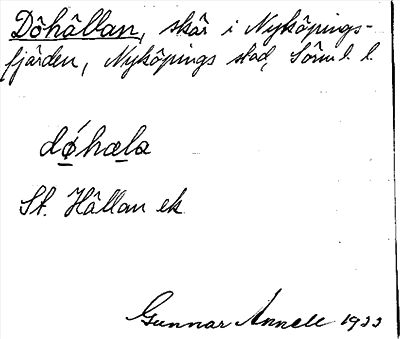 Döhällan, skär i Nyköpings-
fjärden, Nyköpings stad, Sörml. l.
dǿhæla
St. Hällan ek.
Gunnar Annell 1933